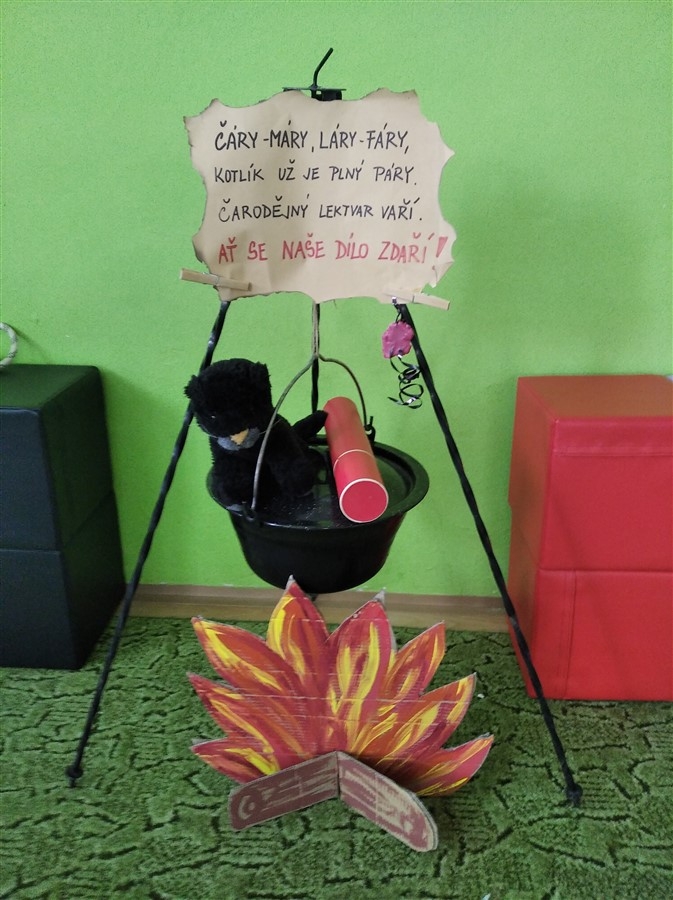 ČÁRY-MÁRY, LÁRY-FÁRY,
KOTLÍK UŽ JE PLNÝ PÁRY.
ČARODĚJNÝ LEKTVAR VAŘÍ.
AŤ SE NAŠE DÍLO ZDAŘÍ!